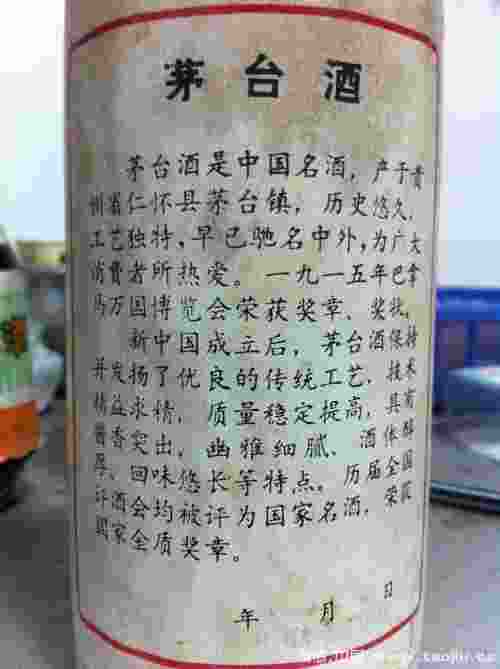 茅台酒
茅台酒是中国名酒，产于贵
州省仁怀县茅台镇，历史悠久，
工艺独特，早已驰名中外，为广大
消费者所热爱。一九一五年巴拿
马万国博览会荣获奖章、奖状。
新中国成立后，茅台酒保持
并发扬了优良的传统工艺，技术
精益求精，质量稳定提高，具有
酱香突出，幽雅细腻、酒体醇
厚、回味悠长等特点。历届全国
评酒会均被评为国家名酒，荣获
国家金质奖章。
年 月 日